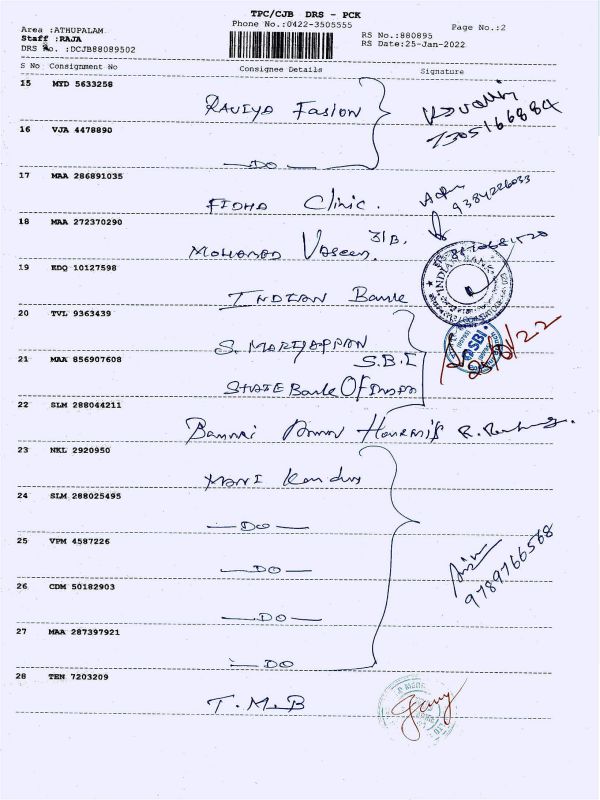 TPC/CJB DRS - PCK
Area :ATHUPALAM
Phone No.:0422-3505555
Page No.:2
Staff :RAJA
RS No.:880895
DRS No. :DCJB88089502
RS Date:25-Jan-2022
S No Consignment No Consignee Details Signature
15 MTD 5633258
RAVIYA Fasion
7305166884
16 VJA 4478890
—DO—
17 MAA 286891035
FIDHA Clinic.
9384226033
18 MAA 272370290
MOHAMAD Vaseem. 31B.
19 EDQ 10127598
INDIAN Bank
INDIAN BANK
20 TVL 9363439
S. MARIYAPPAN
S.B.I
SBI
21 MAA 856907608
STATE Bank Of India
22 SLM 288044211
Bannari Amman
23 NKL 2920950
MANI Kandan
24 SLM 288025495
—DO—
25 VPM 4587226
—DO—
9789766568
26 CDM 50182903
—DO—
27 MAA 287397921
—DO
28 TEN 7203209
T.M.B